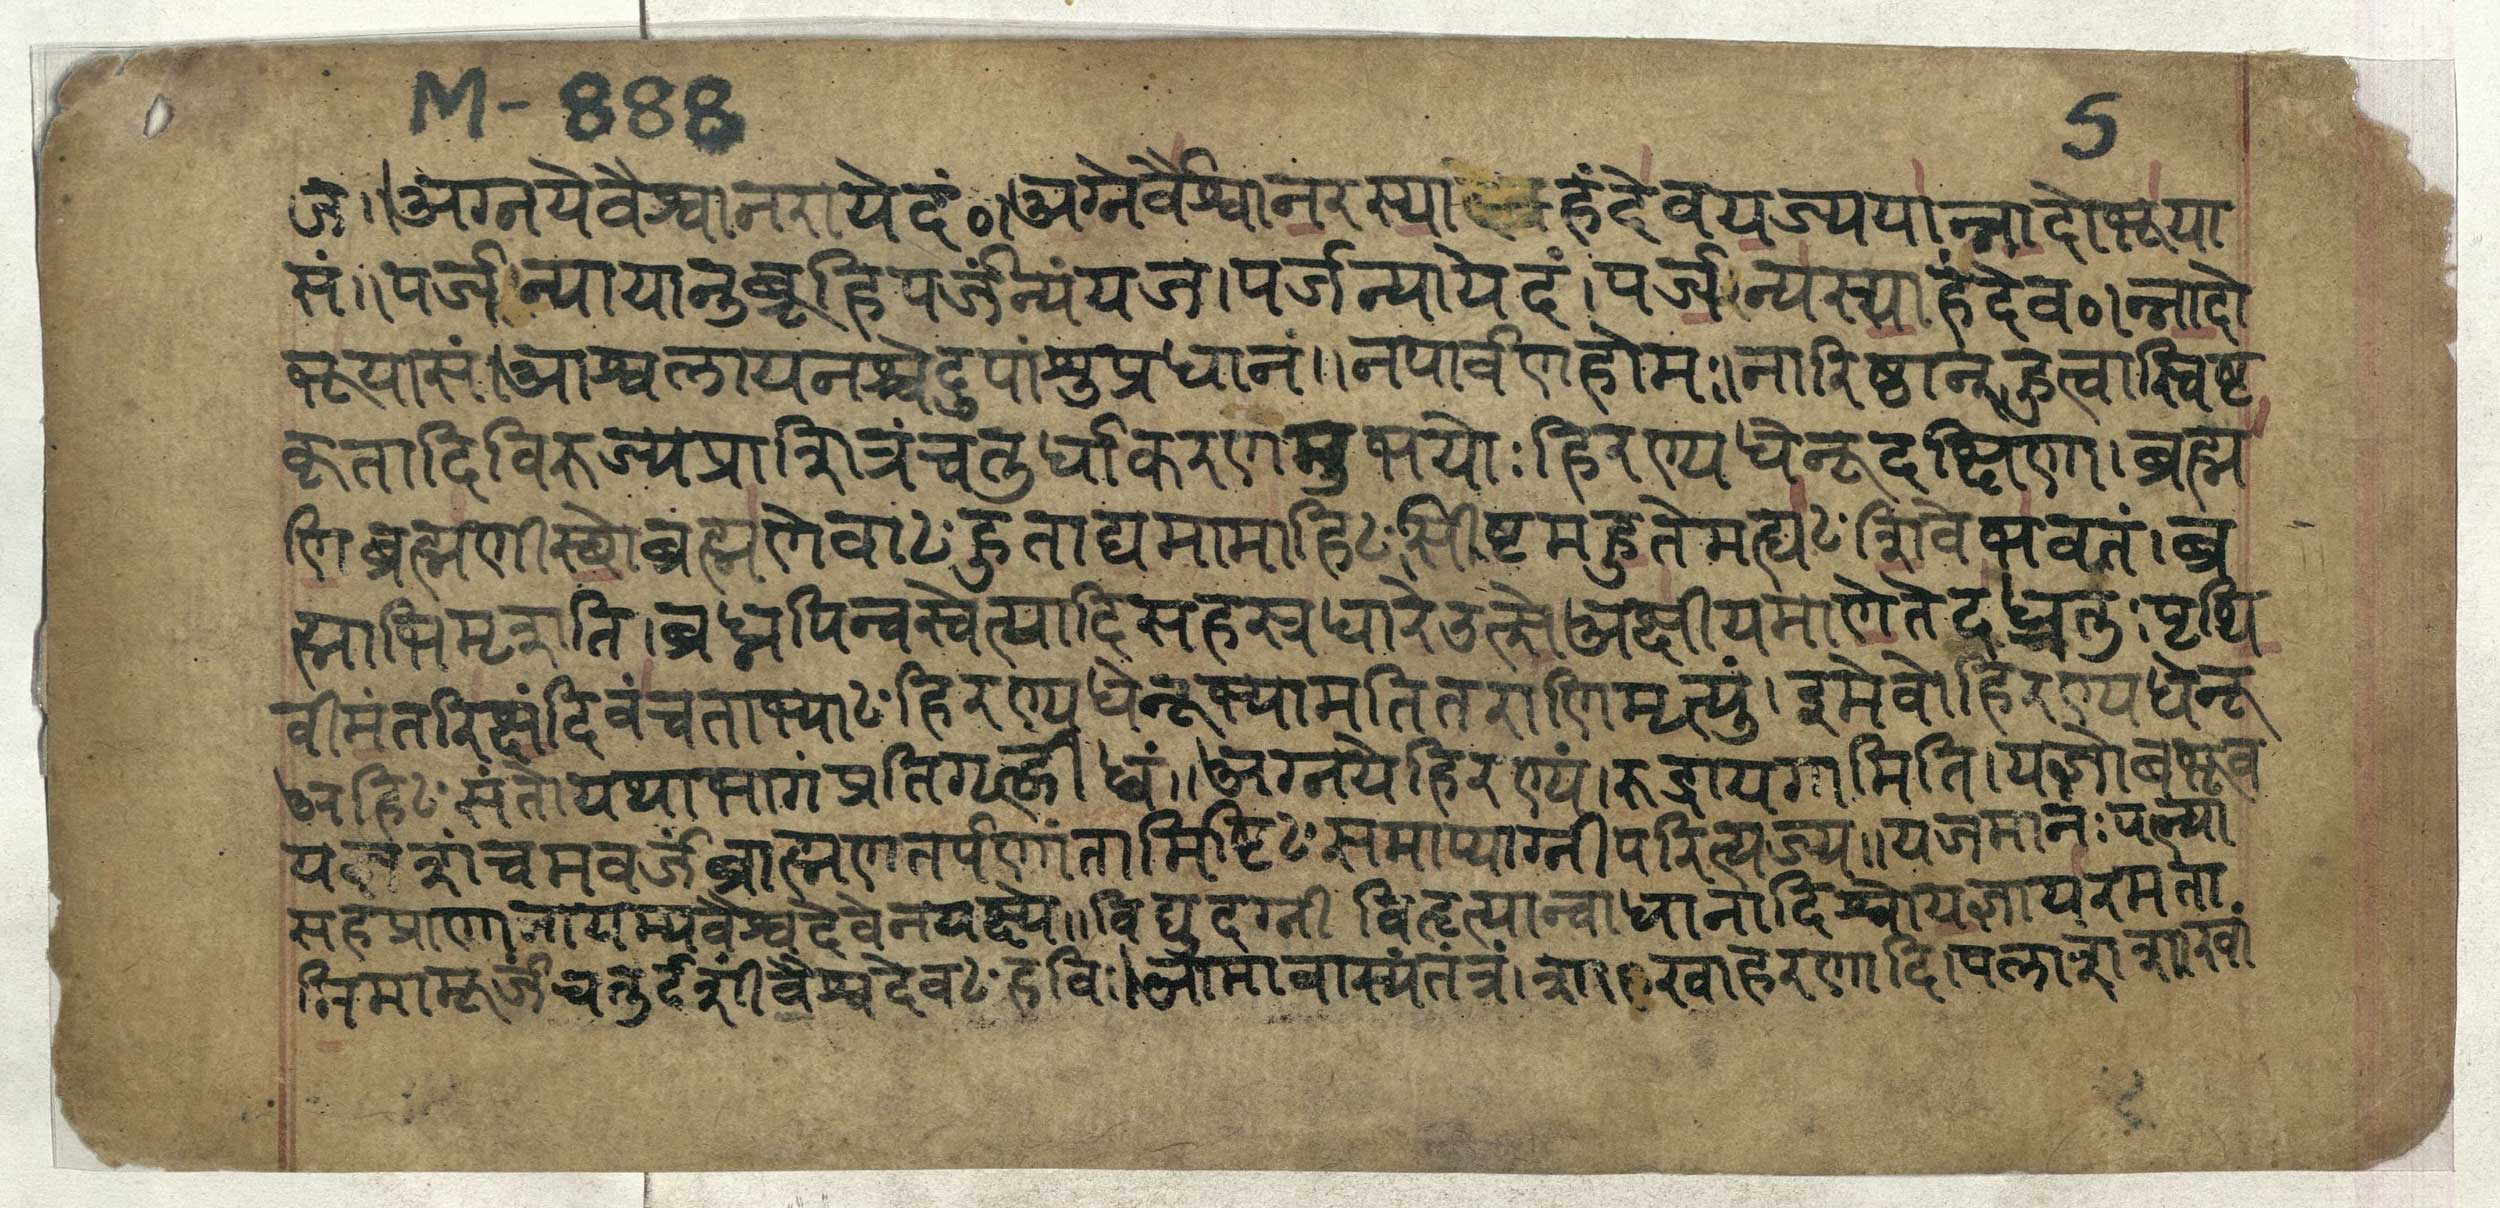 M-888 5
ज॥अग्नयेवैश्वानरायेदं०।अग्नेर्वैश्वानरस्या हंदेवयज्ययान्नादोभूया
सं॥पर्जन्यायानुब्रूहिपर्जन्यंयज।पर्जन्यायेदं।पर्जन्यस्याहंदेव०।न्नादो
भूयासं।आश्वलायनश्चेदुपांशुप्रधानं॥नपार्वणहोमः॥नारिष्ठान्हुत्वास्विष्ट
कृतादिविरुज्यप्राशित्रंचतुर्धाकरणमुभयोःहिरण्यधेनूदक्षिणा।ब्रह्म
णिब्रह्मणीस्थोब्रह्मणेवाꣳहुताद्यमामाहिꣳसीष्टमहुतेमह्यꣳशिवेभवतं।ब्र
ह्माभिमृशति।ब्रध्नपिन्वस्वेत्यादिसहस्रधारेउत्सेअक्षीयमाणेतेदध्रतुःपृथि
वीमंतरिक्षंदिवंचताभ्याꣳहिरण्यधेनूभ्यामतितराणिमृत्युं।इमेवोहिरण्यधेनू
अहिꣳसंतोयथाभागंप्रतिगृह्णीध्वं॥अग्नयेहिरण्यं।रुद्रायगामिति।यज्ञोबभूव
यज्ञशंचमवर्जंब्राह्मणतर्पणांतामिष्टिꣳसमाप्याग्नीपरित्यज्य॥यजमानःपत्न्या
सहप्राणानायम्यवैश्वदेवेनयक्ष्ये॥विद्युदग्नी विहृत्यान्वाधानादिश्वोयज्ञायरमता
मिमामूर्जंचतुर्दशींवैश्वदेवꣳहविः।आमावास्यंतंत्रं।शाखाहरणादि।पलाशशाखां